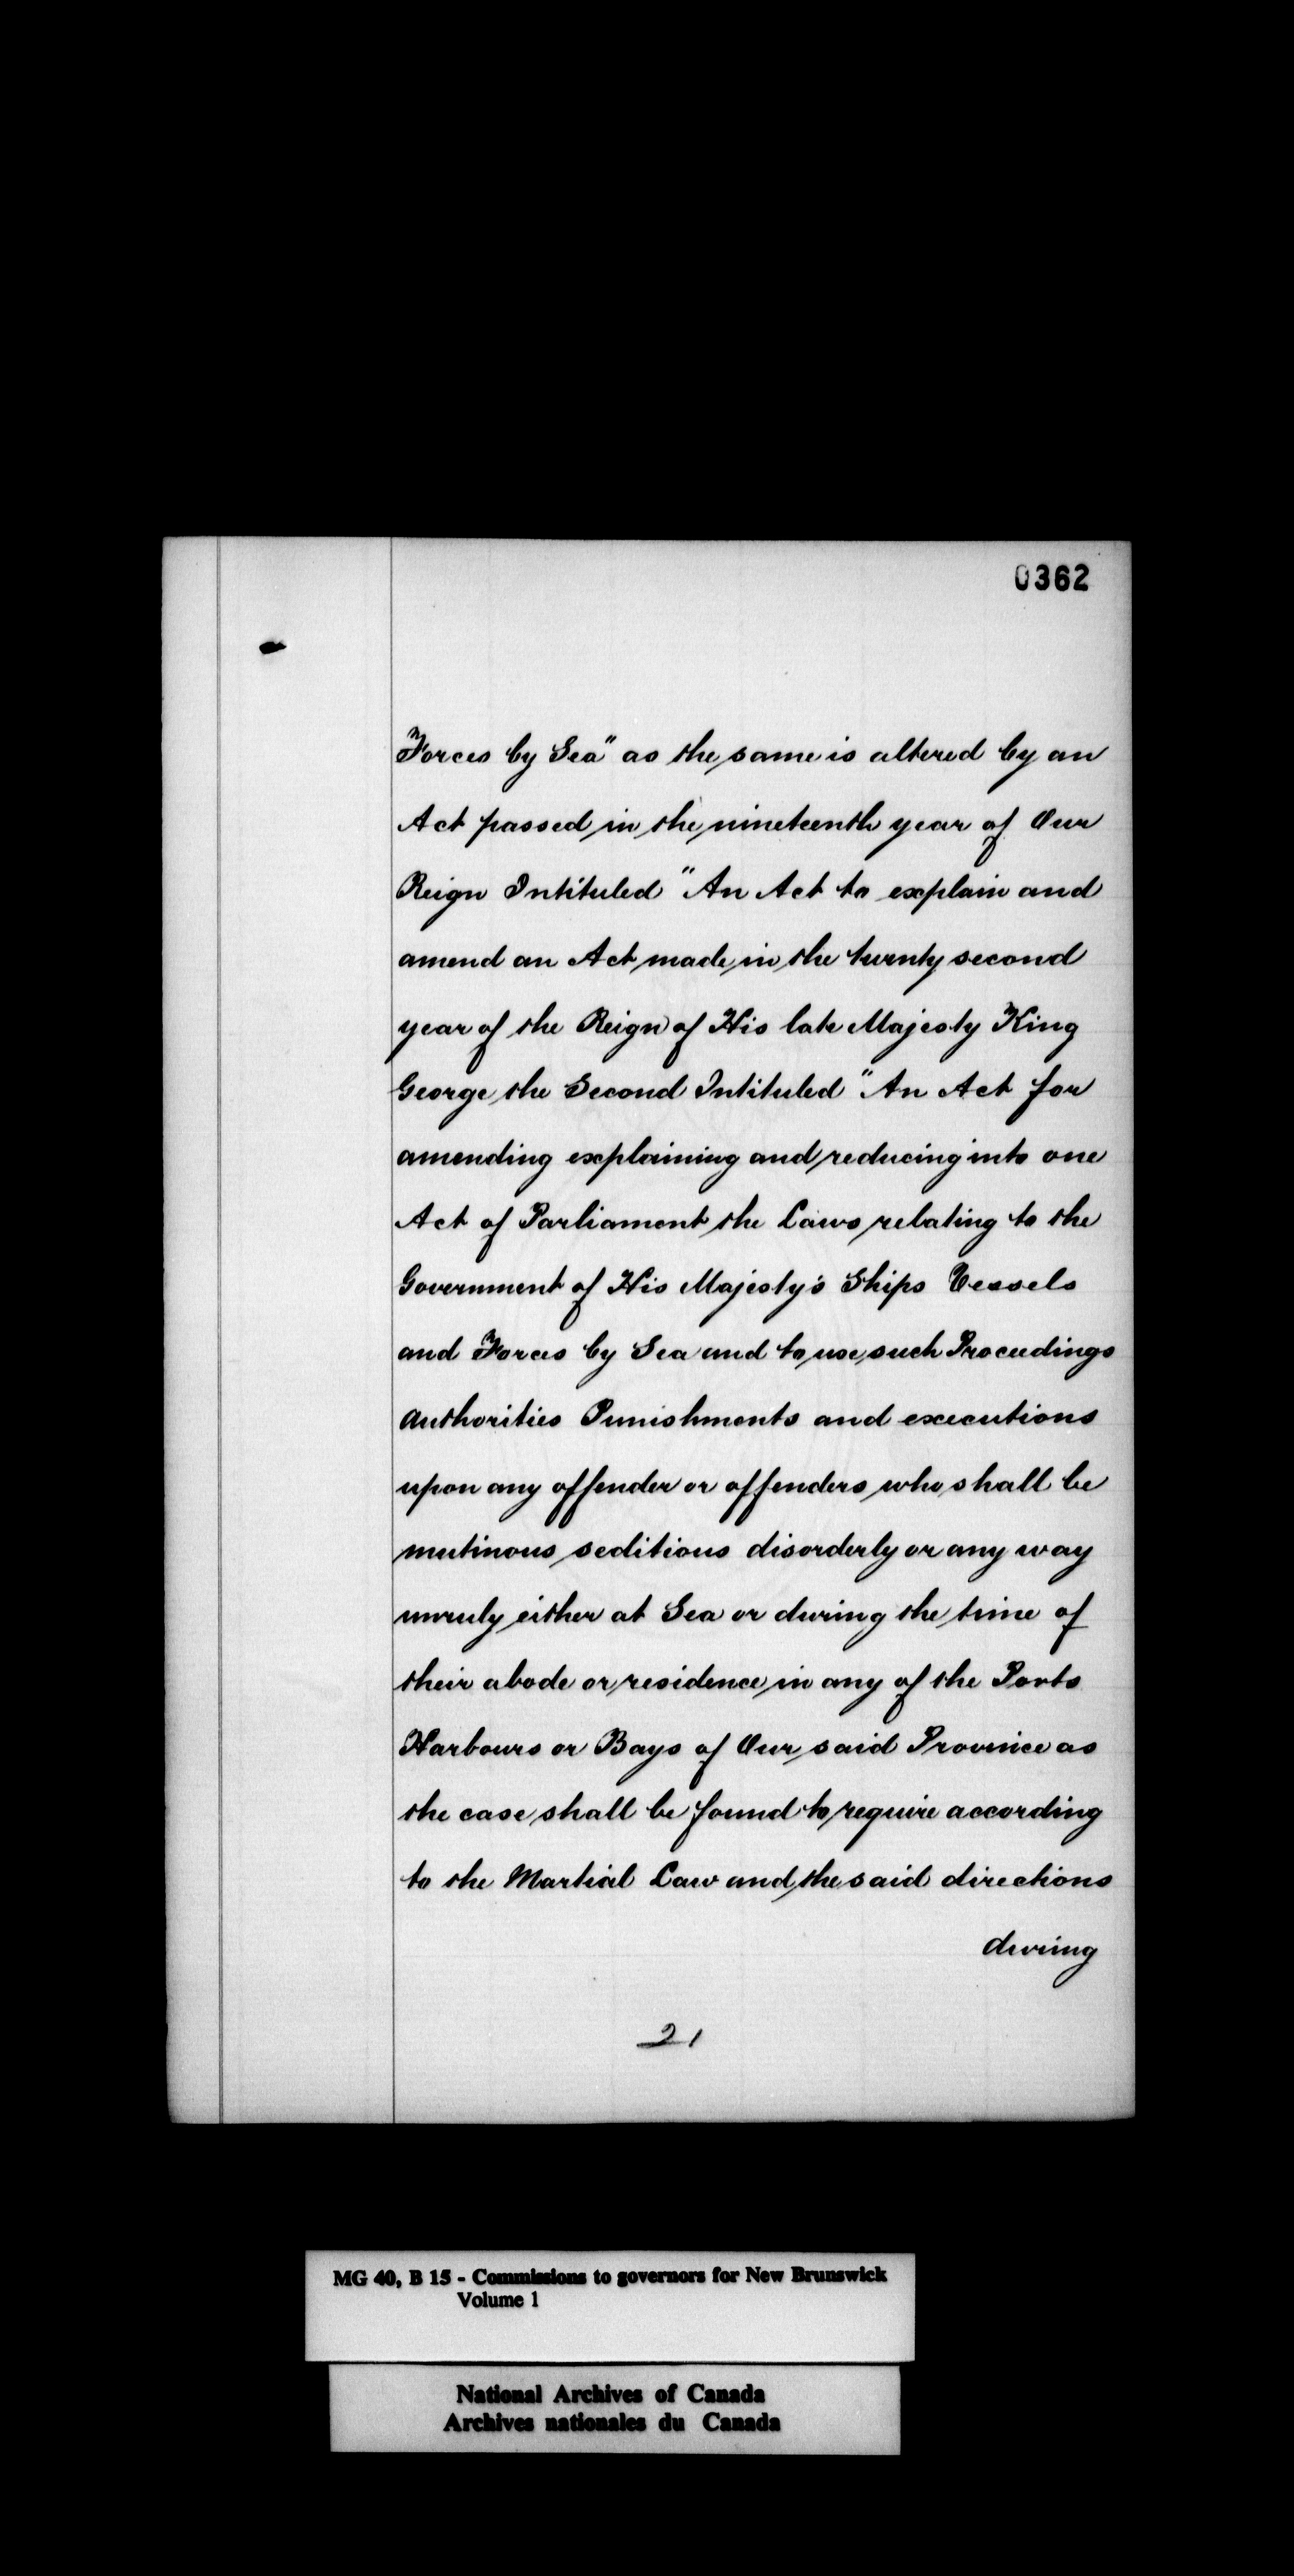 0362
"Forces by Sea" as the same is altered by an
Act passed in the nineteenth year of Our
Reign Intituled "An Act to explain and
amend an Act made in the twenty second
year of the Reign of His late Majesty King
George the Second Intituled "An Act for
amending explaining and reducing into one
Act of Parliament the Laws relating to the
Government of His Majesty's Ships Vessels
and Forces by Sea and to use such Proceedings
Authorities Punishments and executions
upon any offender or offenders who shall be
mutinous seditious disorderly or any way
unruly either at Sea or during the time of
their abode or residence in any of the Ports
Harbours or Bays of Our said Province as
the case shall be found to require according
to the Martial Law and the said directions
during
21
MG 40, B 15 - Commissions to governors for New Brunswick
Volume 1
National Archives of Canada
Archives nationales du Canada